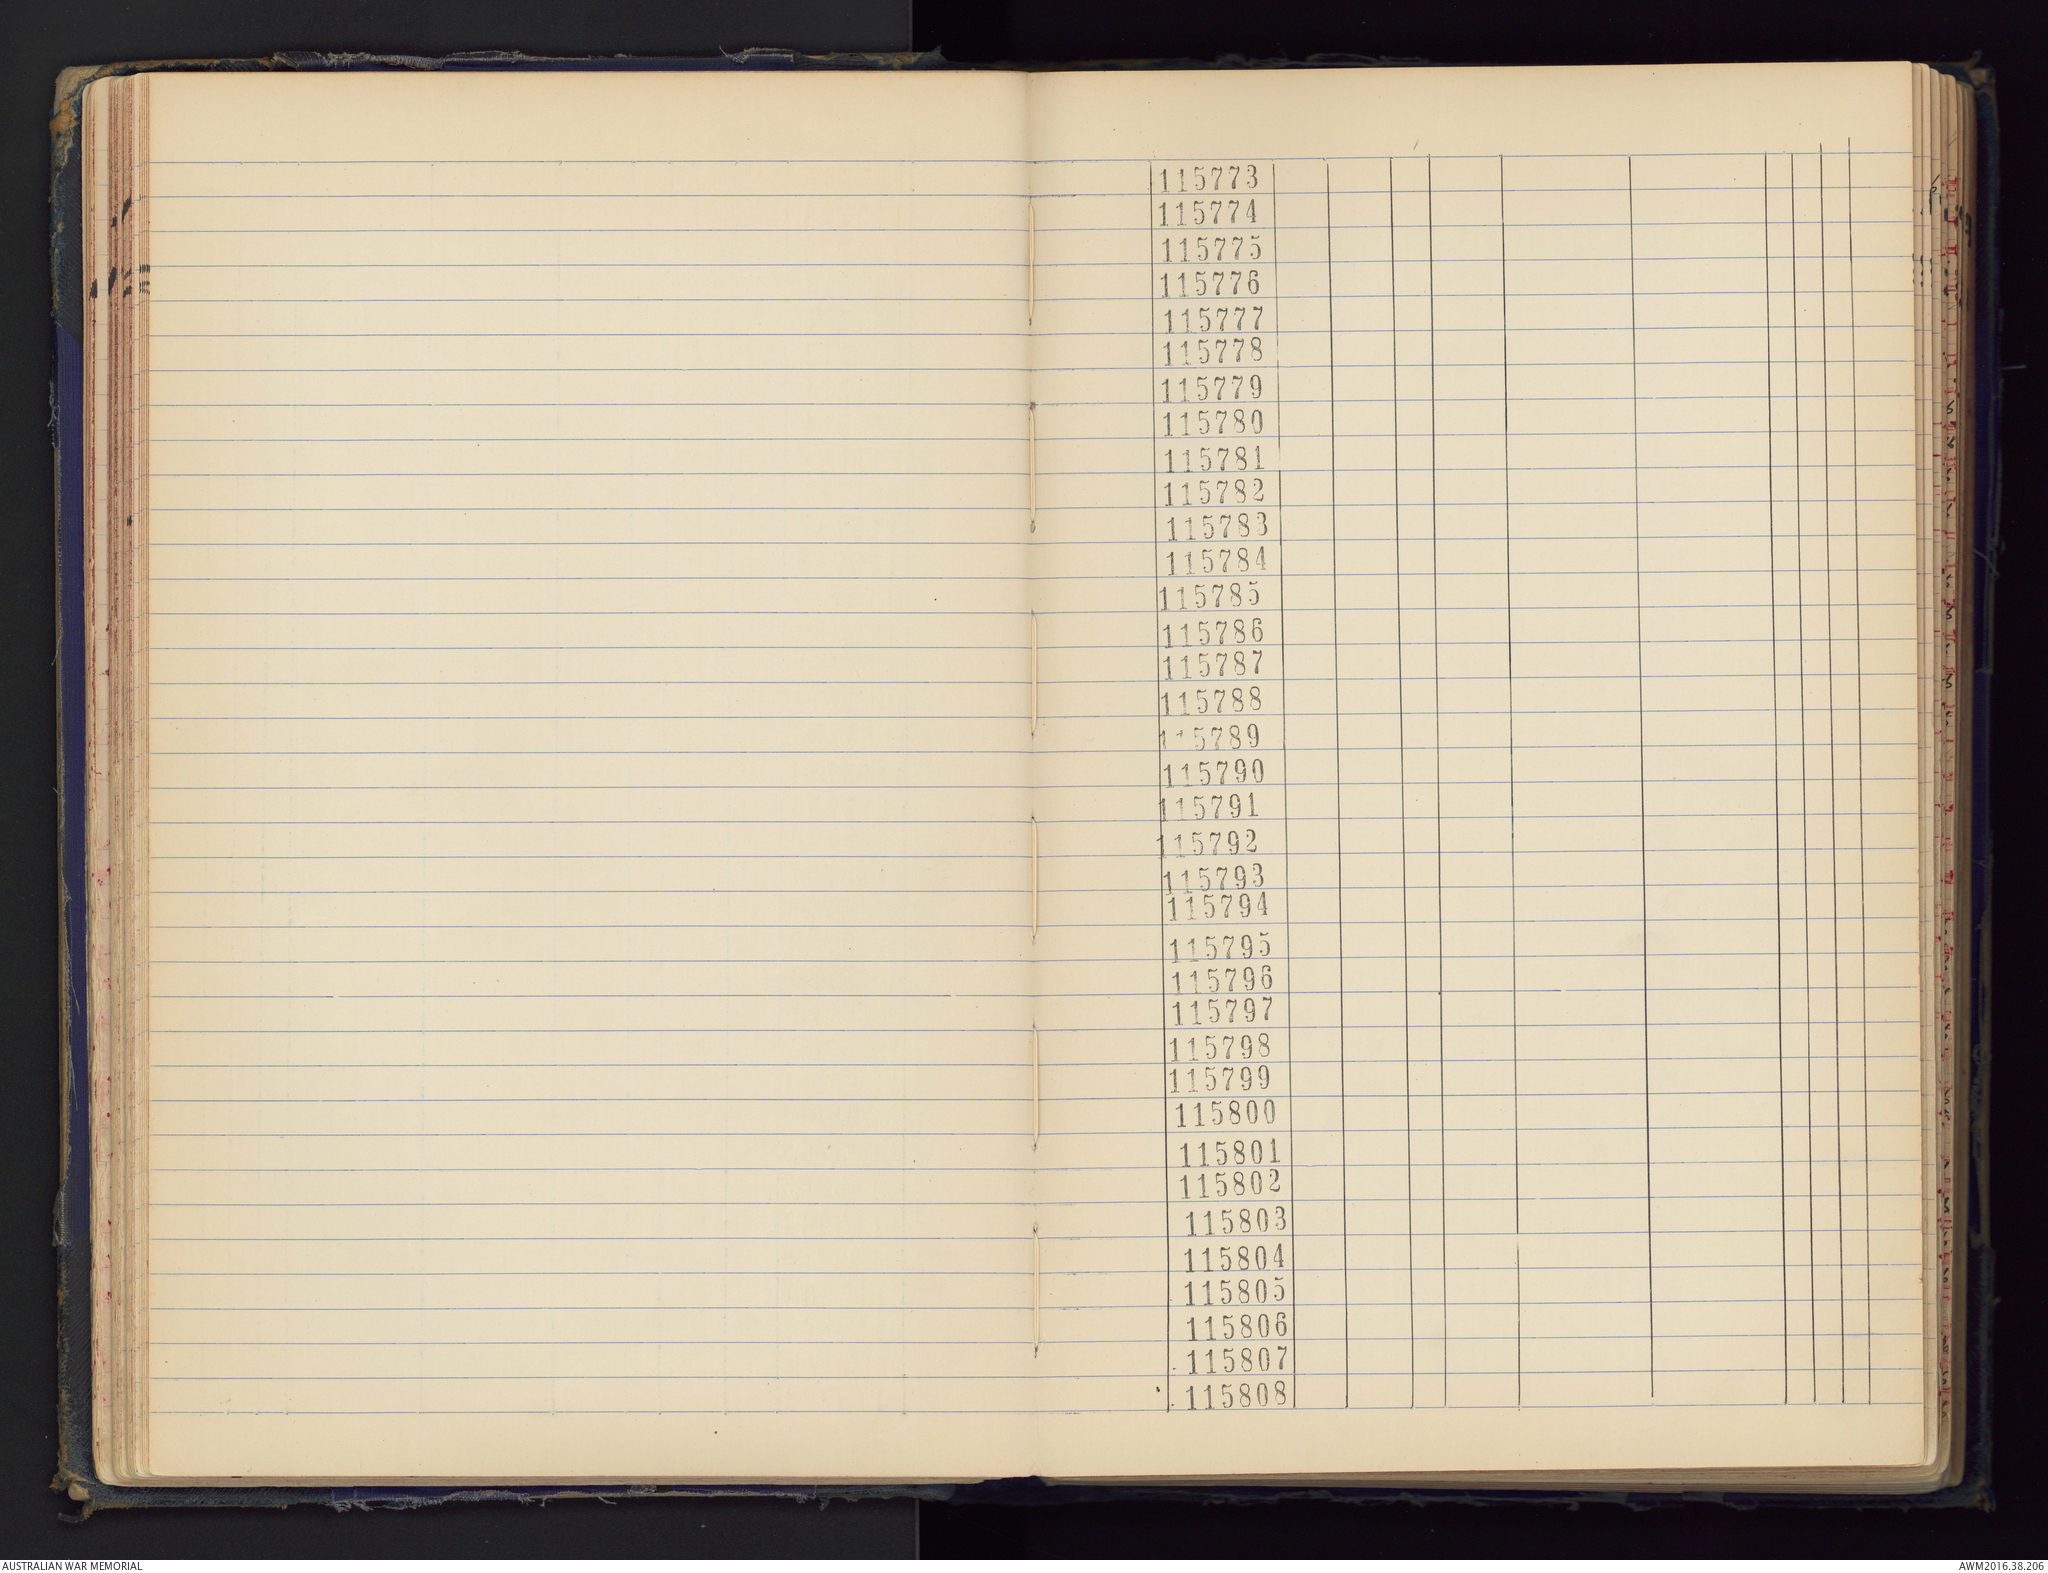 115773
115774
115775
115776
115777
115778
115779
115780
115781
115782
115783
115784
115785
115786
115787
115788
115789
115790
115791
115792
115793
115794
115795
115796
115797
115798
115799
115800
115801
115802
115803
115804
115805
115806
115807
115808
AUSTRALIAN WAR MEMORIAL
AWM2016.38.206